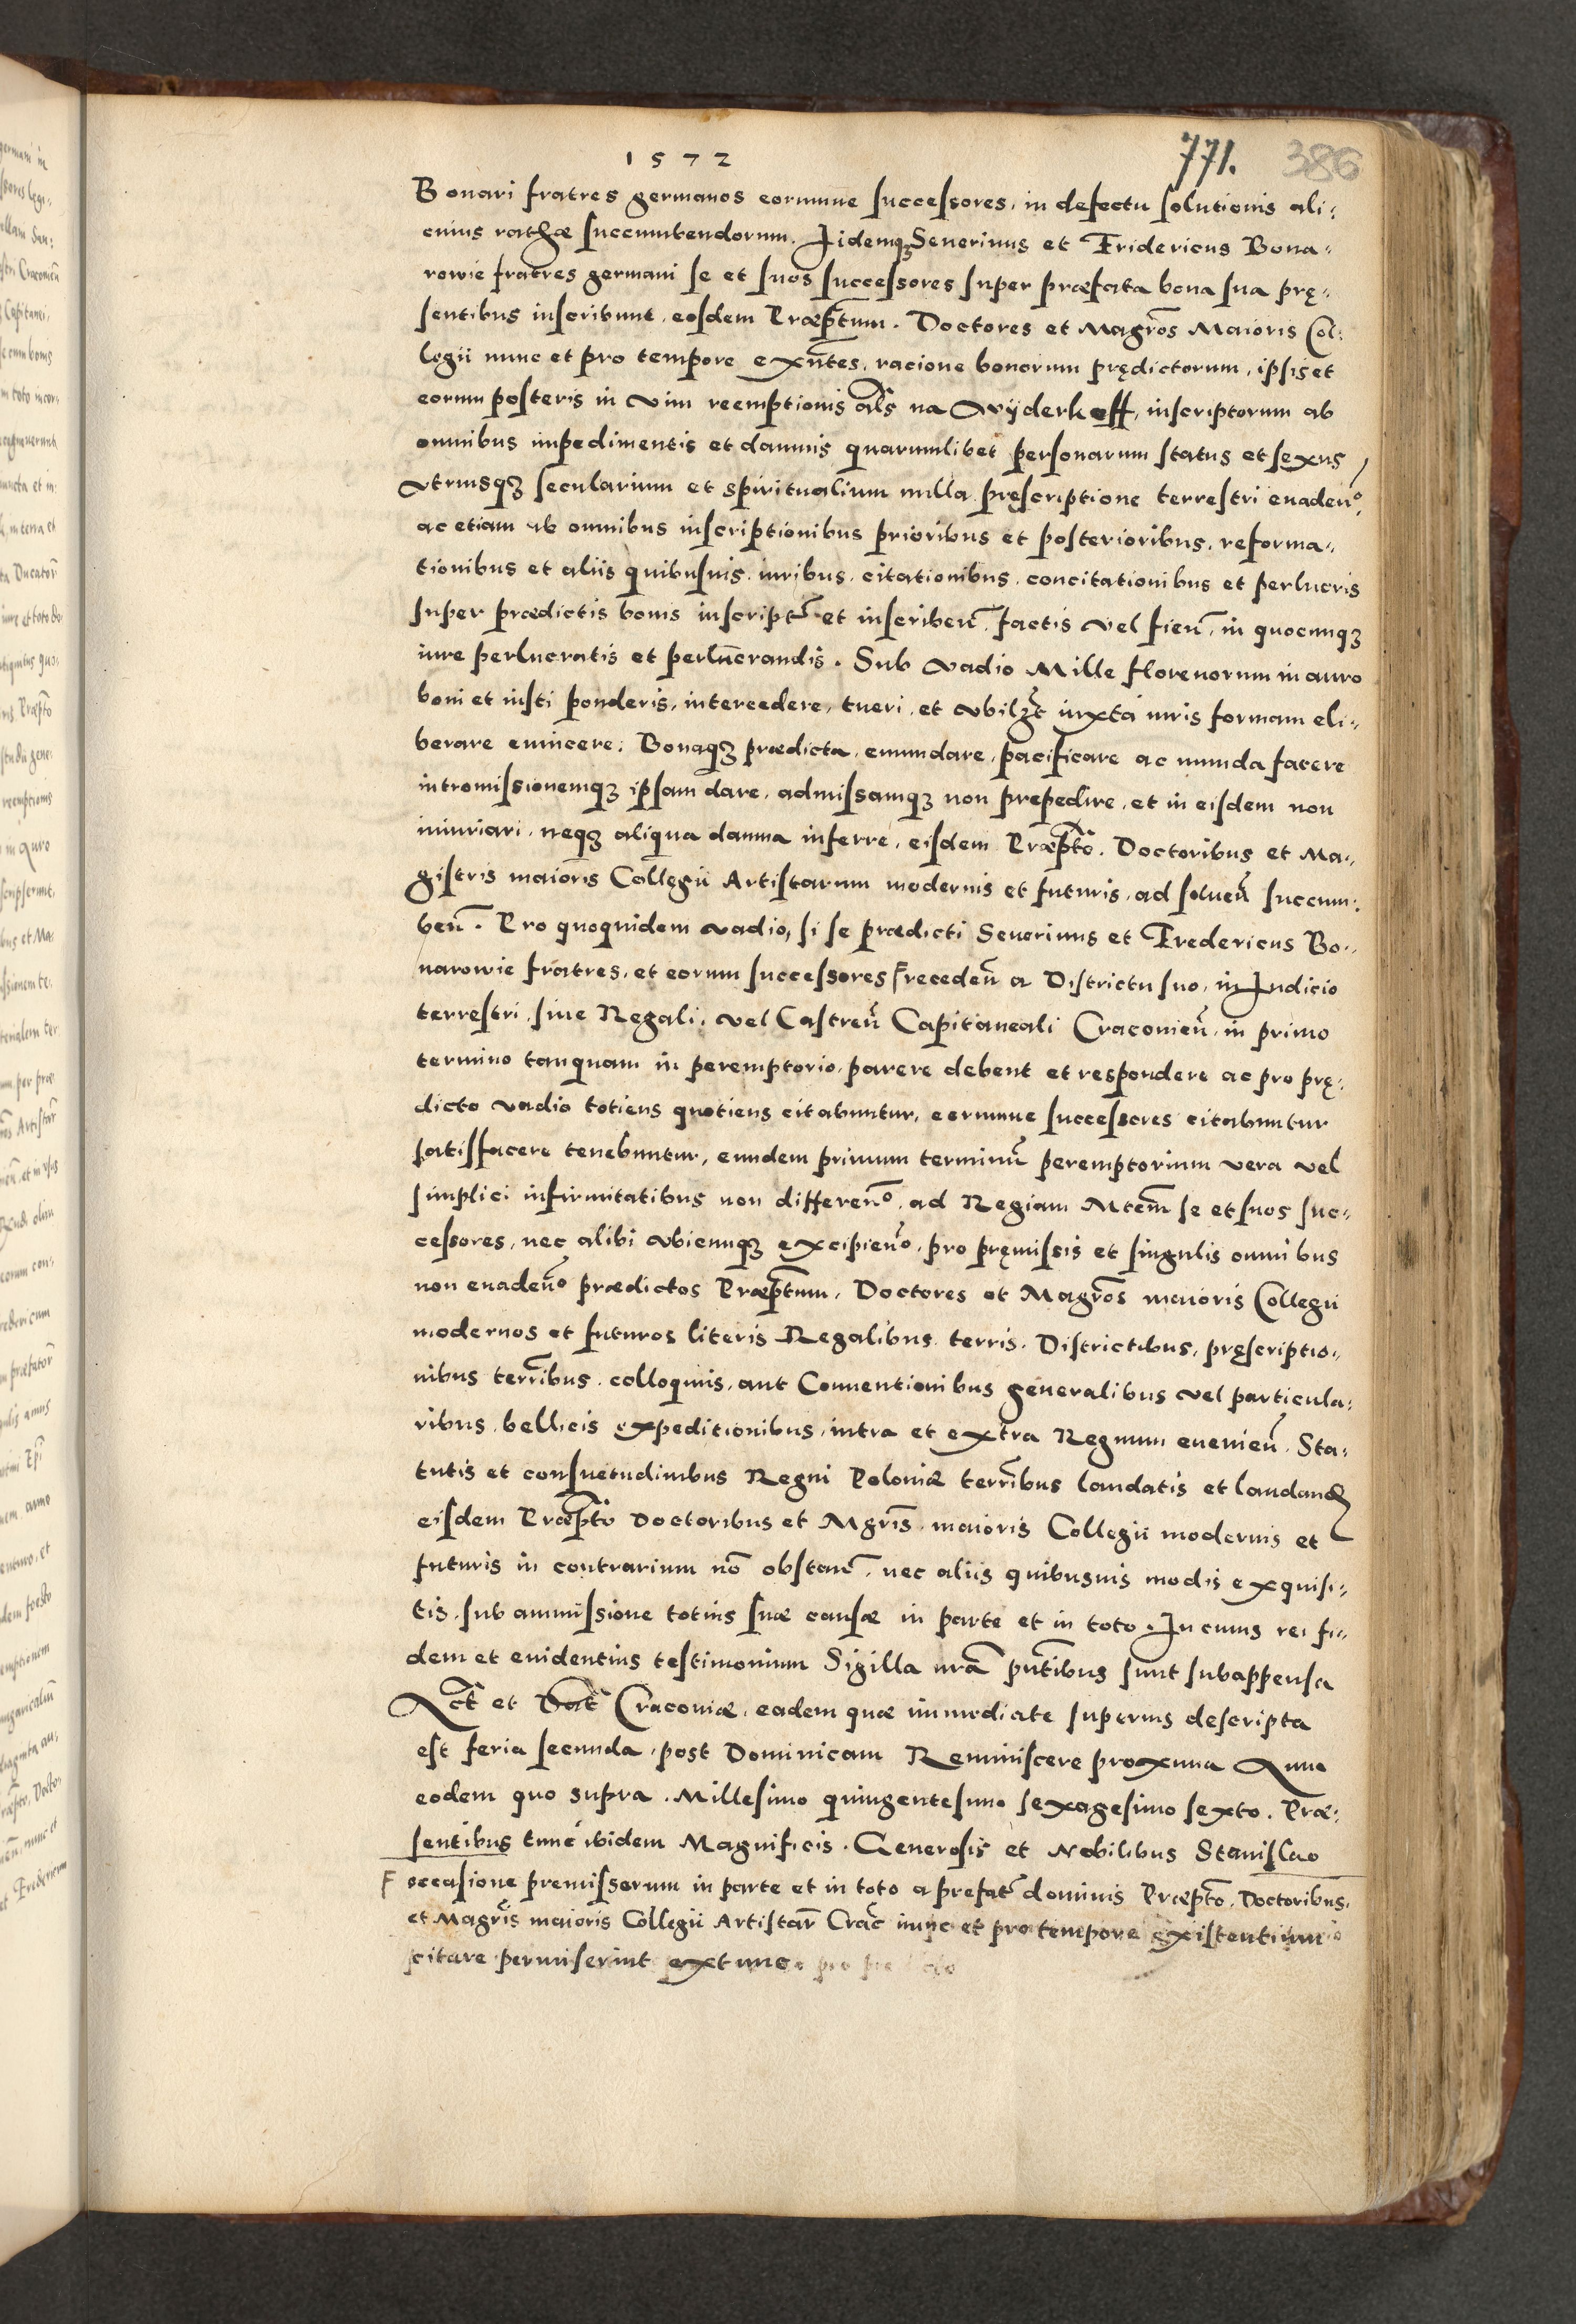 1572
771. 386
Bonari fratres germanos eorumue successores, in defectu solutionis ali:
cuius rathæ succumbendorum. Iidemqꝫ Seuerinus et Fridericus Bona-
rowie fratres germani se et suos successores super præfata bona sua prę-
sentibus inscribunt, eosdem Præp̃tum. Doctores et Magr̃os Maioris Col:
legii nunc et pro tempore exñtes, racione bonorum prędictorum, ipsis et
eorum posteris in vim reemptionis al̃s na Wyderkoff, inscriptorum ab
omnibus impedimentis et damnis quarumlibet personarum status et sexus
vtriusqꝫ secularium et spiritualium nulla pręscriptione terrestri euadeñ.
ac etiam ab omnibus inscriptionibus prioribus et posterioribus, reforma-
tionibus et aliis quibusuis iuribus, citationibus, concitationibus et perlucris
super prædictis bonis inscript̃ et inscribeñ, factis vel fieñ, in quocunqꝫ
iure perlucratis et perlucrandis. Sub vadio Mille florenorum in auro
boni et iusti ponderis, intercedere, tueri, et vbilꝫt iuxta iuris formam eli-
berare euincere: Bonaqꝫ prædicta, emundare, pacificare ac munda facere
intromissionemqꝫ ipsam dare, admissamqꝫ non prepedire, et in eisdem non
iniuriari, neqꝫ aliqua damna inferre, eisdem Præp̃to. Doctoribus et Ma-
gistris maioris Collegii Artistarum modernis et futuris, ad soluen̄ succum:
beñ. Pro quoquidem vadio, si se prædicti Seuerinus et Fredericus Bo-
narowie fratres, et eorum successores F recedeñ a Districtu suo, in Iudicio
terrestri, siue Regali, vel Castreñ Capitaneali Cracouieñ, in primo
termino tanquam in peremptorio, parere debent et respondere ac pro prę-
dicto vadio totiens quotiens citabuntur, eorumue successores citabuntur
satisfacere tenebuntur, eundem primum terminũ peremptorium vera vel
simplici infirmitatibus non differeñ, ad Regiam Mtem̃ se et suos suc-
cessores, nec alibi vbicunqꝫ excipieñ, pro pręmissis et singulis omnibus
non euadeñ prædictos Præp̃tum, Doctores et Magr̃os maioris Collegii
modernos et futuros literis Regalibus, terris. Districtibus, pręscriptio-
nibus terr̃ibus, colloquiis, aut Conuentionibus generalibus vel particula-
ribus, bellicis expeditionibus, intra et extra Regnum euenieñ, Sta-
tutis et consuetudinibus Regni Poloniæ terr̃ibus laudatis et laudand
eisdem Præp̃to Doctoribus et Mgr̃is maioris Collegii modernis et
futuris in contrarium nõ obstañ, nec aliis quibusuis modis exquisi-
tis, sub ammissione totius suæ causæ in parte et in toto. In cuius rei fi-
dem et euidentius testimonium Sigilla nr̃a pñtibus sunt subappensa
Act̃ et Dat̃ Cracouiæ, eadem quæ immediate superius descripta
est feria secunda, post Dominicam Reminiscere proxima Anno
eodem quo supra. Millesimo quingentesimo sexagesimo sexto. Præ-
sentibus tunc ibidem Magnificis. Generosis et Nobilibus Stanislao
F occasione premissorum in parte et in toto a prefat̃ dominis Præp̃to. Doctoribus.
et Magr̃is maioris Collegii Artistar̃ Crac̃ nunc et pro tempore existentium
citare permiserint extunc pro